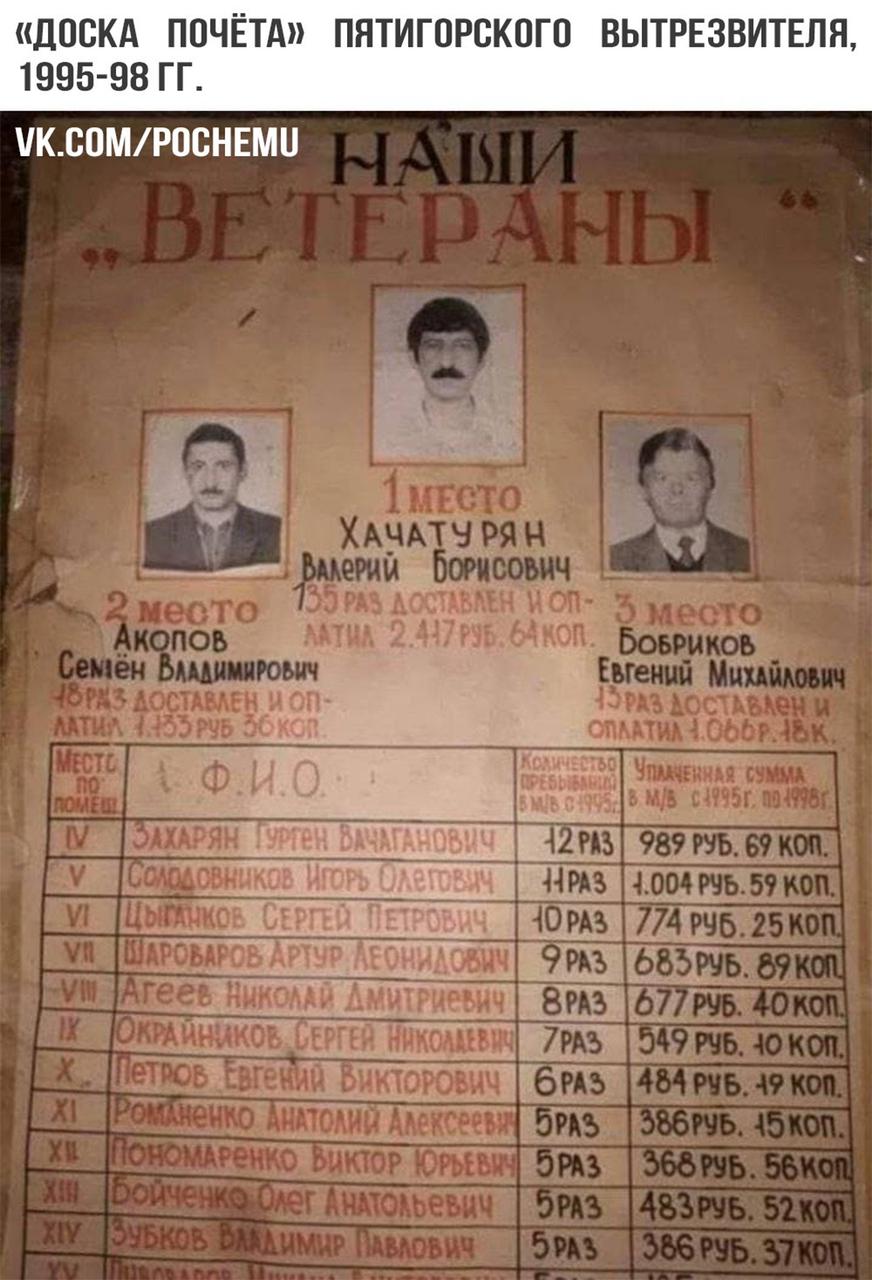 «ДОСКА ПОЧЁТА» ПЯТИГОРСКОГО ВЫТРЕЗВИТЕЛЯ,
1995-98 ГГ.
VK.COM/POCHEMU
НАШИ
„ВЕТЕРАНЫ“
1 МЕСТО
ХАЧАТУРЯН
ВАЛЕРИЙ БОРИСОВИЧ
135 РАЗ ДОСТАВЛЕН И ОП-
ЛАТИЛ 2.417 РУБ. 64 КОП.
2 МЕСТО
АКОПОВ
СЕМЁН ВЛАДИМИРОВИЧ
18 РАЗ ДОСТАВЛЕН И ОП-
ЛАТИЛ 1.133 РУБ 36 КОП.
3 МЕСТО
БОБРИКОВ
ЕВГЕНИЙ МИХАЙЛОВИЧ
13 РАЗ ДОСТАВЛЕН И
ОПЛАТИЛ 1.066 Р. 18 К.
МЕСТО ПО ПОМЕЩ. Ф.И.О. КОЛИЧЕСТВО ПРЕБЫВАНИЙ В М/В С 1995г. УПЛАЧЕННАЯ СУММА В М/В С 1995г. ПО 1998г.
IV ЗАХАРЯН ГУРГЕН ВАЧАГАНОВИЧ 12 РАЗ 989 РУБ. 69 КОП.
V СОЛОДОВНИКОВ ИГОРЬ ОЛЕГОВИЧ 11 РАЗ 1.004 РУБ. 59 КОП.
VI ЦЫГАНКОВ СЕРГЕЙ ПЕТРОВИЧ 10 РАЗ 774 РУБ. 25 КОП.
VII ШАРОВАРОВ АРТУР ЛЕОНИДОВИЧ 9 РАЗ 683 РУБ. 89 КОП.
VIII АГЕЕВ НИКОЛАЙ ДМИТРИЕВИЧ 8 РАЗ 677 РУБ. 40 КОП.
IX ОКРАЙНИКОВ СЕРГЕЙ НИКОЛАЕВИЧ 7 РАЗ 549 РУБ. 10 КОП.
X ПЕТРОВ ЕВГЕНИЙ ВИКТОРОВИЧ 6 РАЗ 484 РУБ. 19 КОП.
XI РОМАНЕНКО АНАТОЛИЙ АЛЕКСЕЕВИЧ 5 РАЗ 386 РУБ. 15 КОП.
XII ПОНОМАРЕНКО ВИКТОР ЮРЬЕВИЧ 5 РАЗ 368 РУБ. 56 КОП
XIII БОЙЧЕНКО ОЛЕГ АНАТОЛЬЕВИЧ 5 РАЗ 483 РУБ. 52 КОП.
XIV ЗУБКОВ ВЛАДИМИР ПАВЛОВИЧ 5 РАЗ 386 РУБ. 37 КОП.
XV